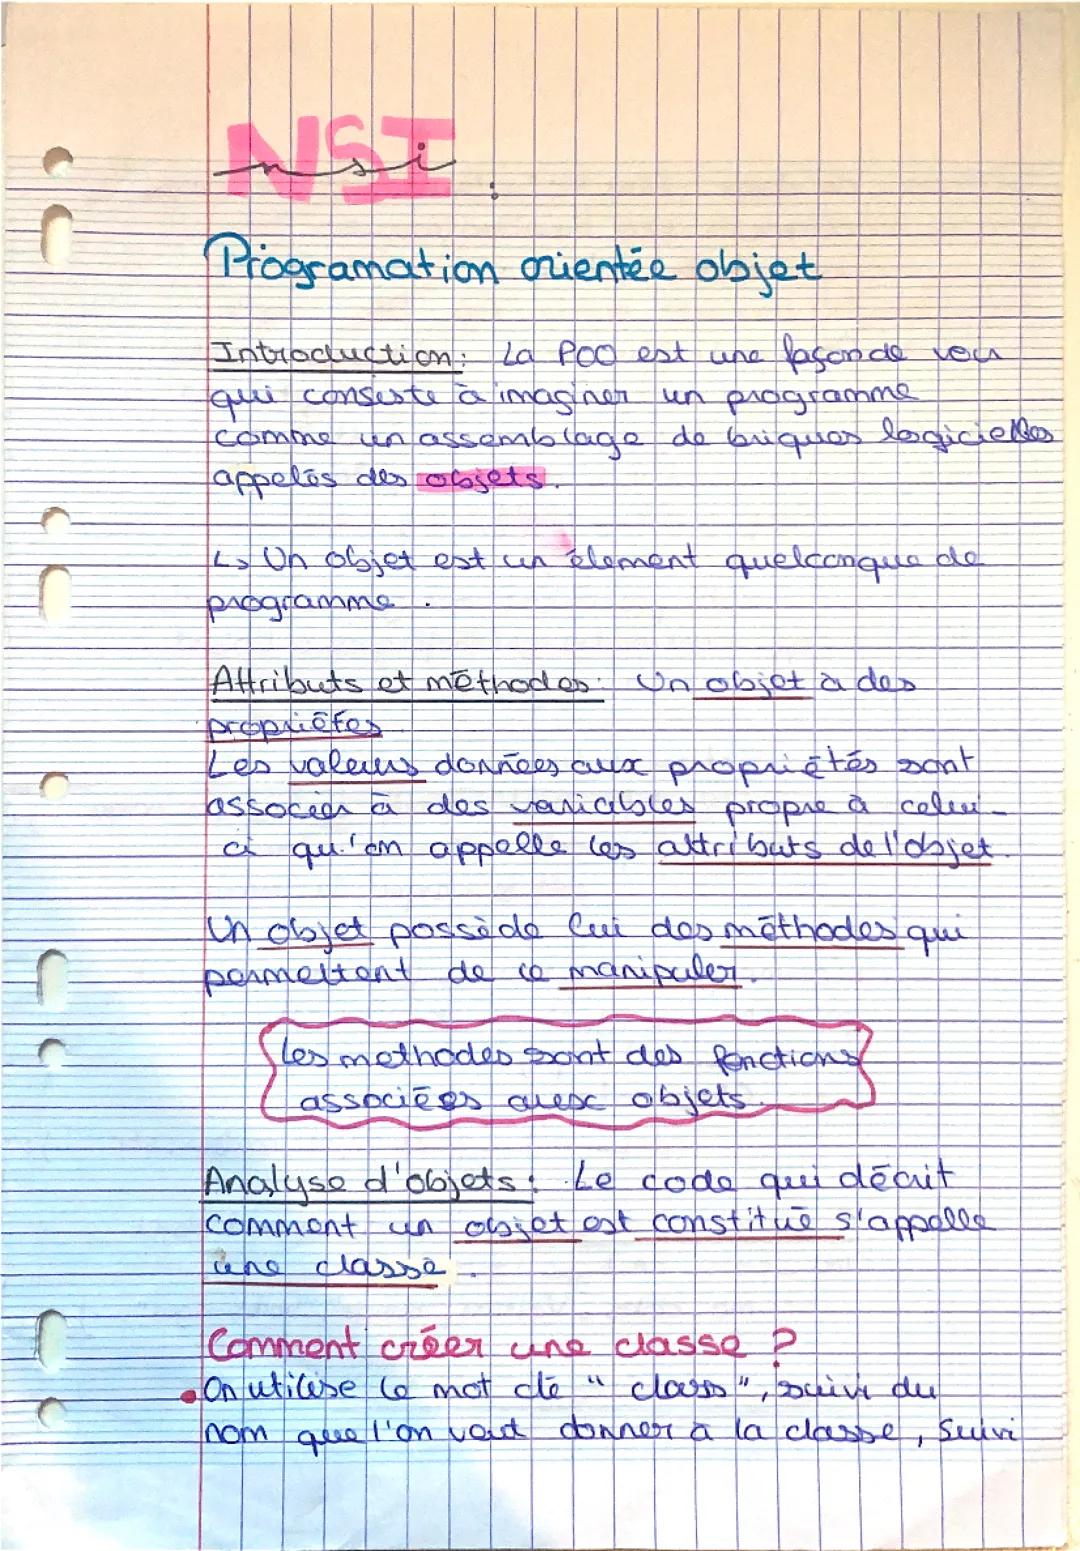 NSI
nsi :
Programation orientée objet
Introduction : La POO est une façon de voir
qui consiste à imaginer un programme
comme un assemblage de briques logicielles
appelés des objets.
↳ Un objet est un élement quelconque de
programme.
Attributs et méthodes : Un objet à des
propriétés
Les valeurs données aux propriétés sont
associer à des variables propre à celui-
ci qu'on appelle les attributs de l'objet.
Un objet possède lui des méthodes qui
permettent de le manipuler.
Les methodes sont des fonctions
associées aux objets.
Analyse d'objets : Le code qui décrit
comment un objet est constitué s'appelle
une classe.
Comment créer une classe ?
• On utilise le mot clé " class ", suivi du
nom que l'on veut donner à la classe, suivi